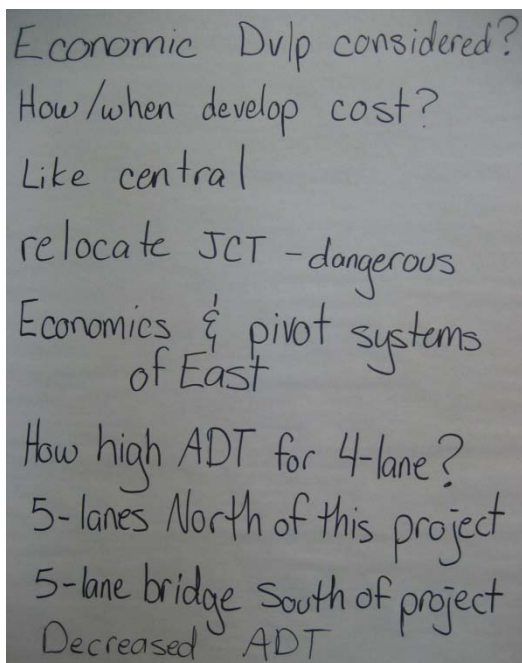 Economic Dvlp considered?
How/when develop cost?
Like central
relocate JCT - dangerous
Economics & pivot systems
of East
How high ADT for 4-lane?
5-lanes North of this project
5-lane bridge South of project
Decreased ADT